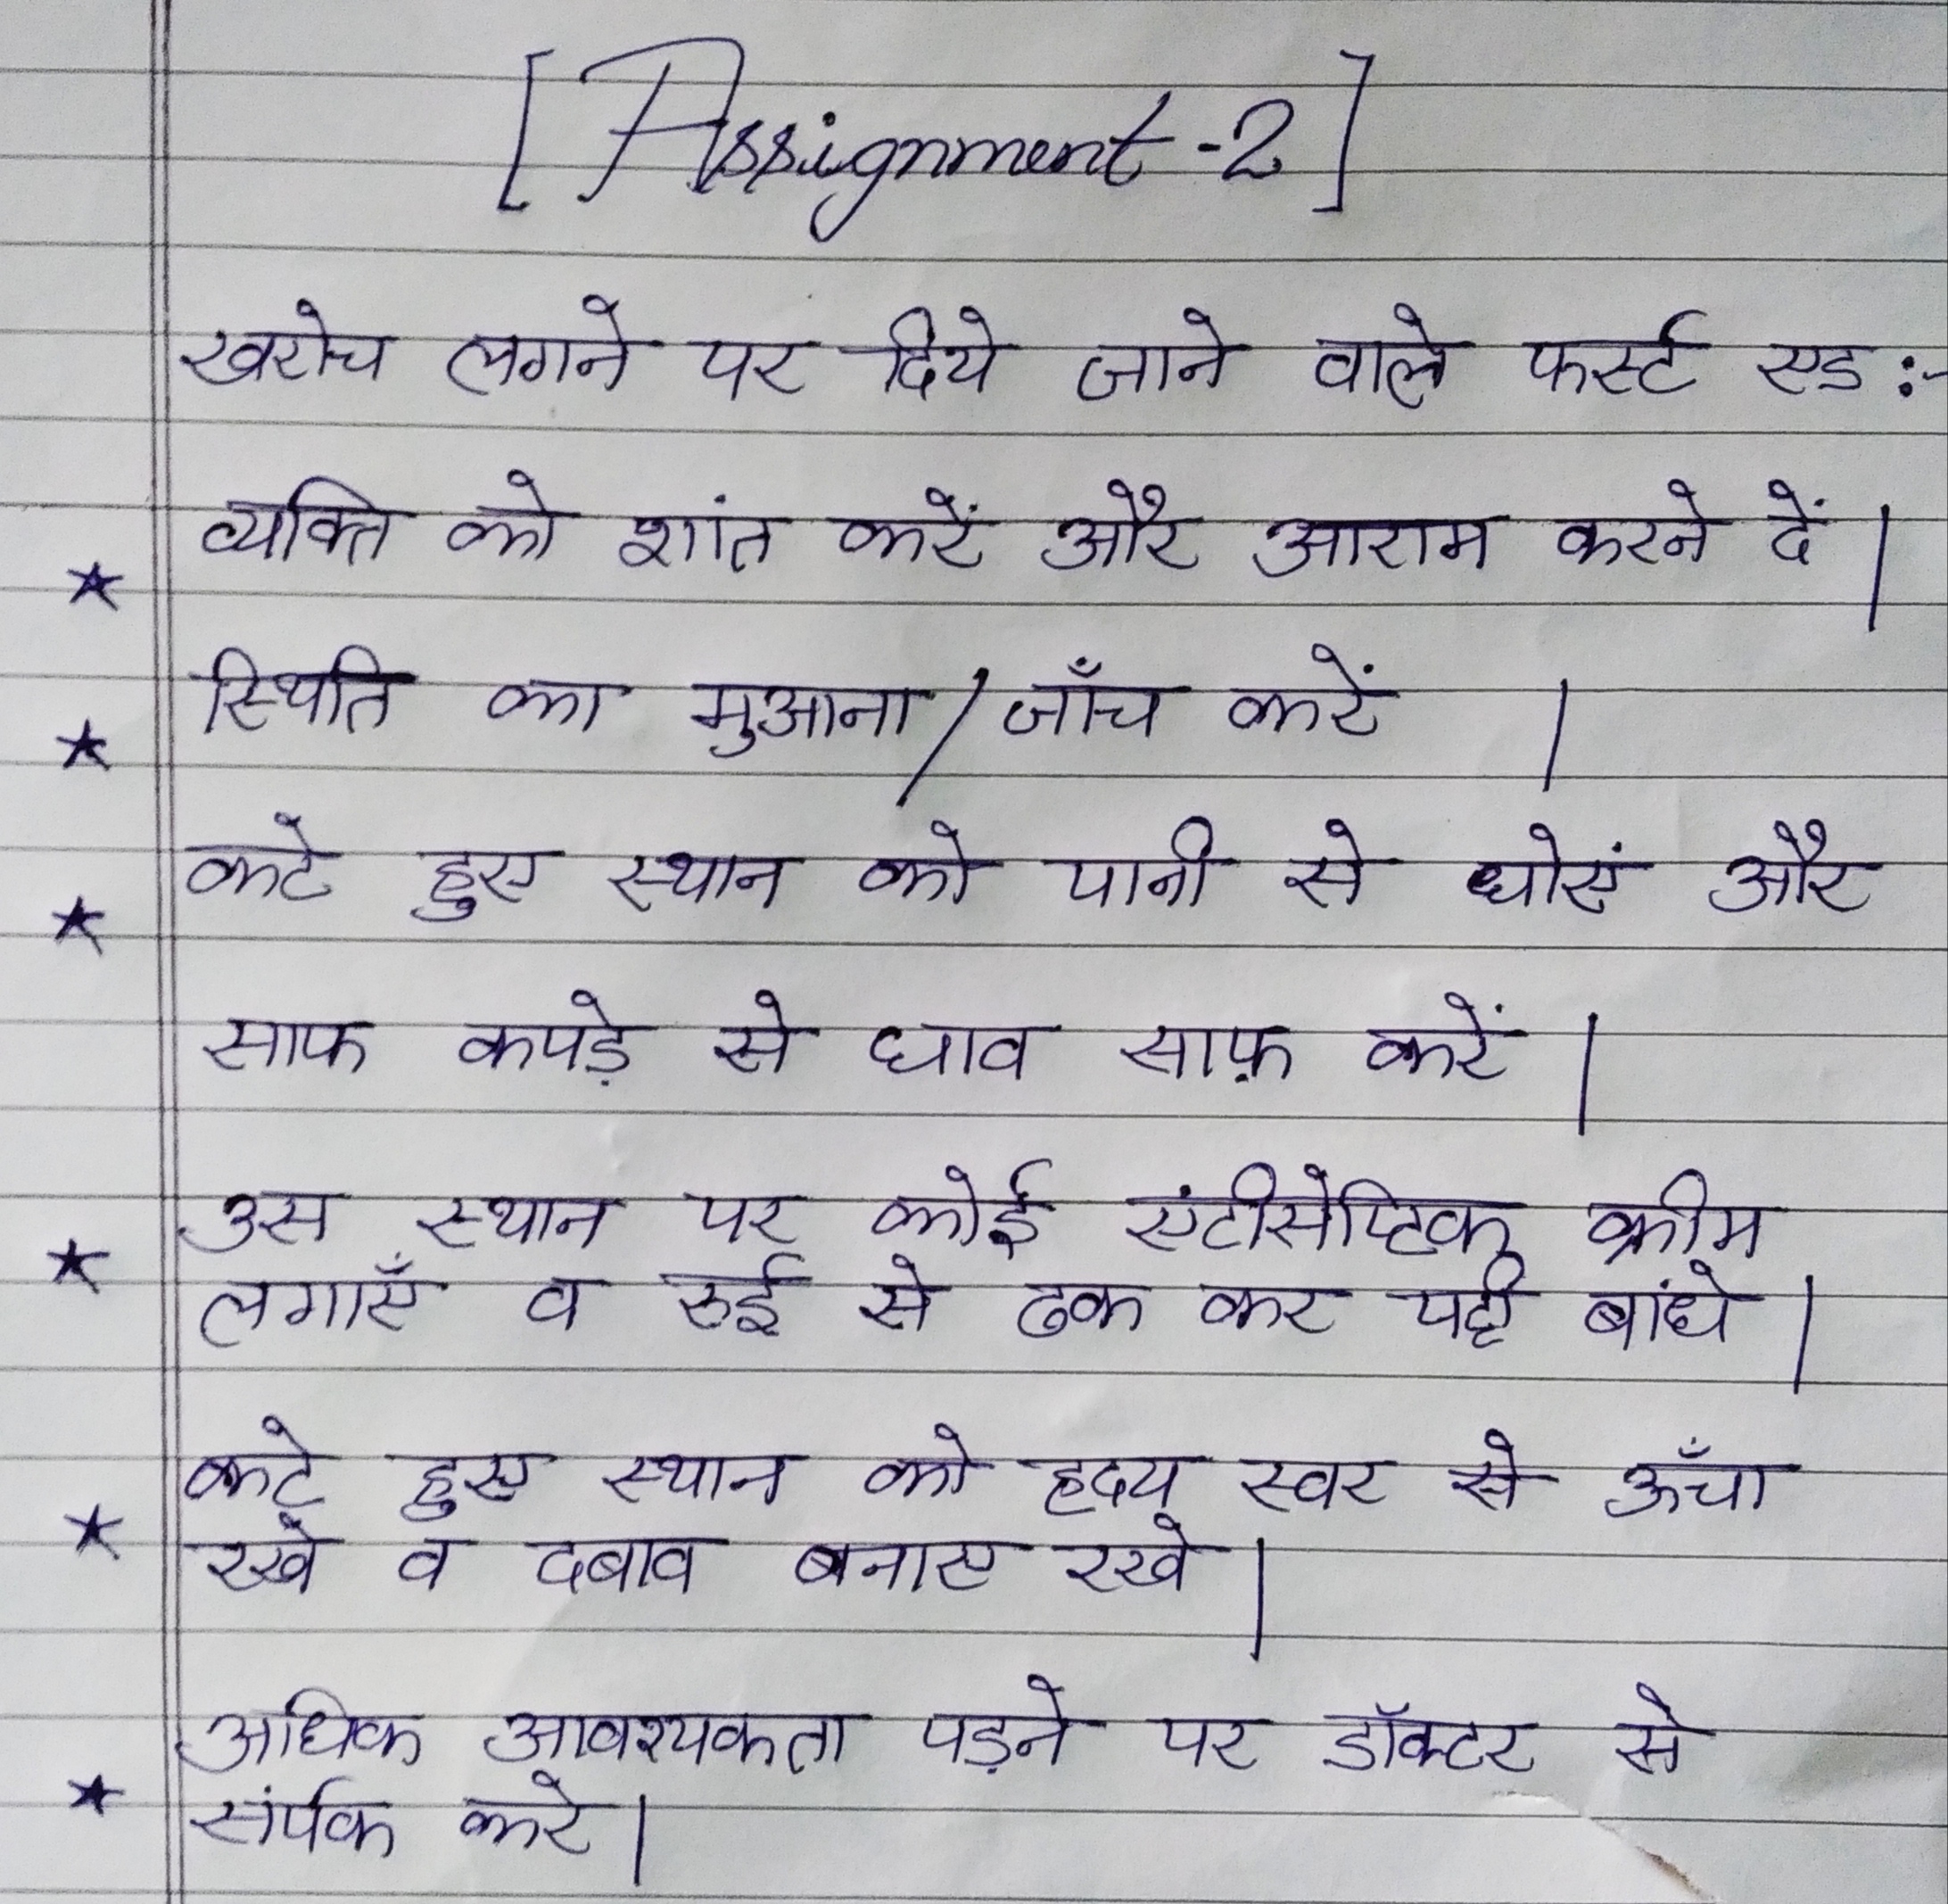 [Assignment-2]
खरोच लगने पर दिये जाने वाले फर्स्ट एड :-
★ व्यक्ति को शांत करें और आराम करने दें |
★ स्थिति का मुआना / जाँच करें |
★ कटे हुए स्थान को पानी से धोएं और
साफ कपड़े से घाव साफ़ करें |
★ उस स्थान पर कोई एंटीसेप्टिक क्रीम
लगाएँ व रुई से ढक कर पट्टी बांधे |
★ कटे हुए स्थान को हृदय स्वर से ऊँचा
रखें व दबाव बनाए रखे |
★ अधिक आवश्यकता पड़ने पर डॉक्टर से
संर्पक करे |